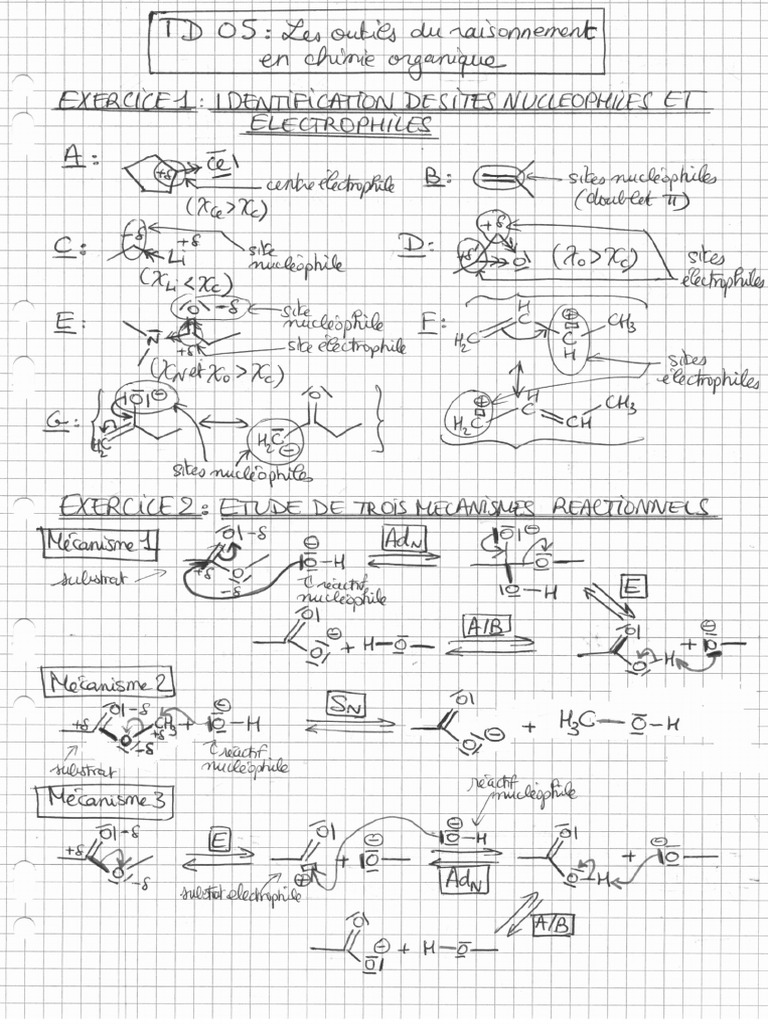 TD 05 : Les outils du raisonnement
en chimie organique
EXERCICE 1 : IDENTIFICATION DE SITES NUCLEOPHILES ET
ELECTROPHILES
A :
+δ
Cl
centre électrophile
(χCl > χC)
B :
sites nucléophiles
(doublet π)
C :
-δ
+δ
Li
site
nucléophile
(χLi < χC)
D :
+δ
+δ'
O
(χO > χC)
sites
électrophiles
E :
O -δ
N
+δ
site
nucléophile
site électrophile
(χN et χO > χC)
F :
H2C
H
C
⊕
C
H
CH3
sites
électrophiles
⊕
H2C
H
C
CH
CH3
G :
O ⊖
H2C
O
H2C
⊖
sites nucléophiles
EXERCICE 2 : ETUDE DE TROIS MECANISMES REACTIONNELS
Mécanisme 1
substrat
O -δ
+δ
O
-δ
⊖
O-H
réactif
nucléophile
AdN
O ⊖
O
O-H
E
O
O ⊖
+ H-O
A/B
O
O H
+ ⊖
O
Mécanisme 2
O -δ
+δ
O -δ
CH3
+δ
+ ⊖
O-H
substrat
réactif
nucléophile
SN
O
O ⊖
+ H3C-O-H
Mécanisme 3
O -δ
+δ
O -δ
E
O
⊕
+ ⊖
O
substrat électrophile
⊖
O-H
réactif
nucléophile
AdN
O
O H
+ ⊖
O
A/B
O
⊖
O
+ H-O